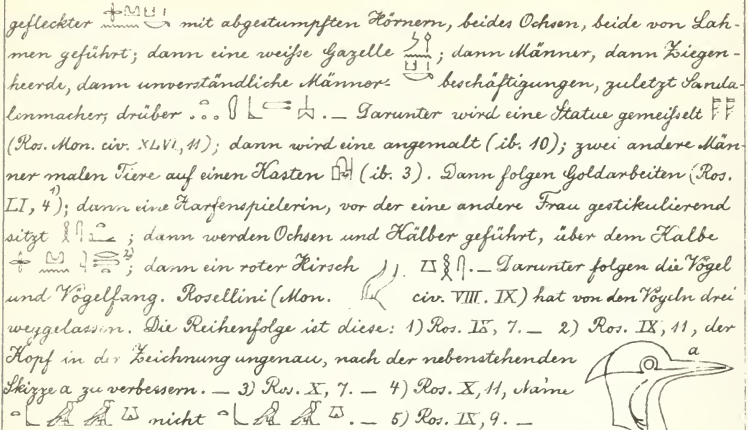 gefleckter mit abgestumpften Hörnern, beides Ochsen, beide von Lah-
men geführt; dann eine weiße Gazelle ; dann Männer, dann Ziegen-
heerde, dann unverständliche Männer- beschäftigungen, zuletzt Sanda-
lenmacher, drüber . — Darunter wird eine Statue gemeißelt
(Ros. Mon. civ. XLVI, 11); dann wird eine angemalt (ib. 10); zwei andere Män-
ner malen Tiere auf einen Kasten (ib. 3). Dann folgen Goldarbeiten (Ros.
LI, 4¹⁾); dann eine Harfenspielerin, vor der eine andere Frau gestikulierend
sitzt ; dann werden Ochsen und Kälber geführt, über dem Kalbe
²⁾; dann ein roter Hirsch . — Darunter folgen die Vögel
und Vögelfang. Rosellini (Mon. civ. VIII. IX) hat von den Vögeln drei
weggelassen. Die Reihenfolge ist diese: 1) Ros. IX, 7. — 2) Ros. IX, 11, der
Kopf in der Zeichnung ungenau, nach der nebenstehenden a
Skizze a zu verbessern. — 3) Ros. X, 7. — 4) Ros. X, 11, Name
nicht . — 5) Ros. IX, 9. —